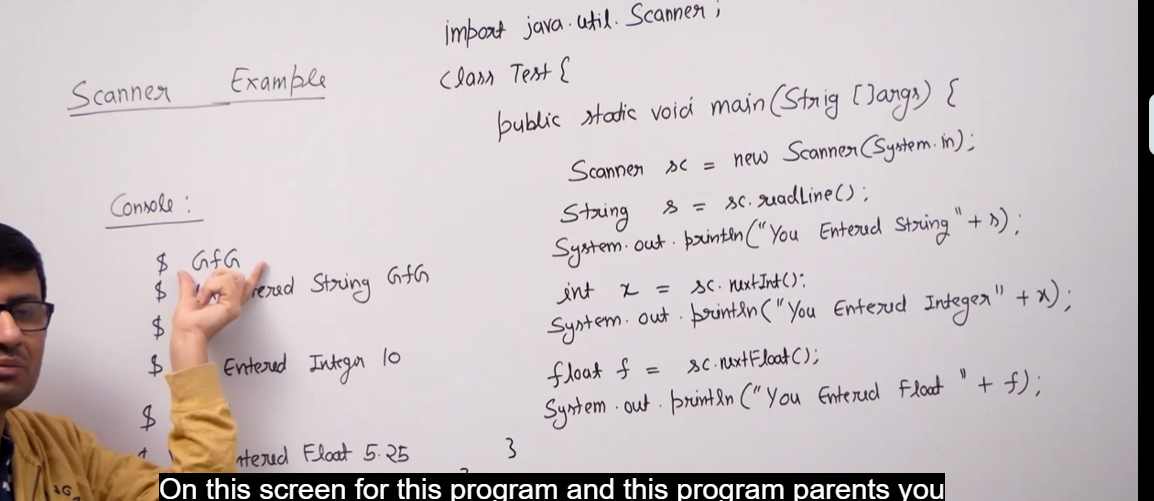 Scanner Example
Console:
$ GfG
$ ered String GfG
$
$ Entered Integer 10
$
ntered Float 5.25
import java.util.Scanner;
class Test{
public static void main(Strig []args) {
Scanner sc = new Scanner(System.in);
String s = sc.readLine();
System.out.println("You Entered String" + s);
int x = sc.nextInt();
System.out.println("You Entered Integer" + x);
float f = sc.nextFloat();
System.out.println("You Entered Float " + f);
}
On this screen for this program and this program parents you